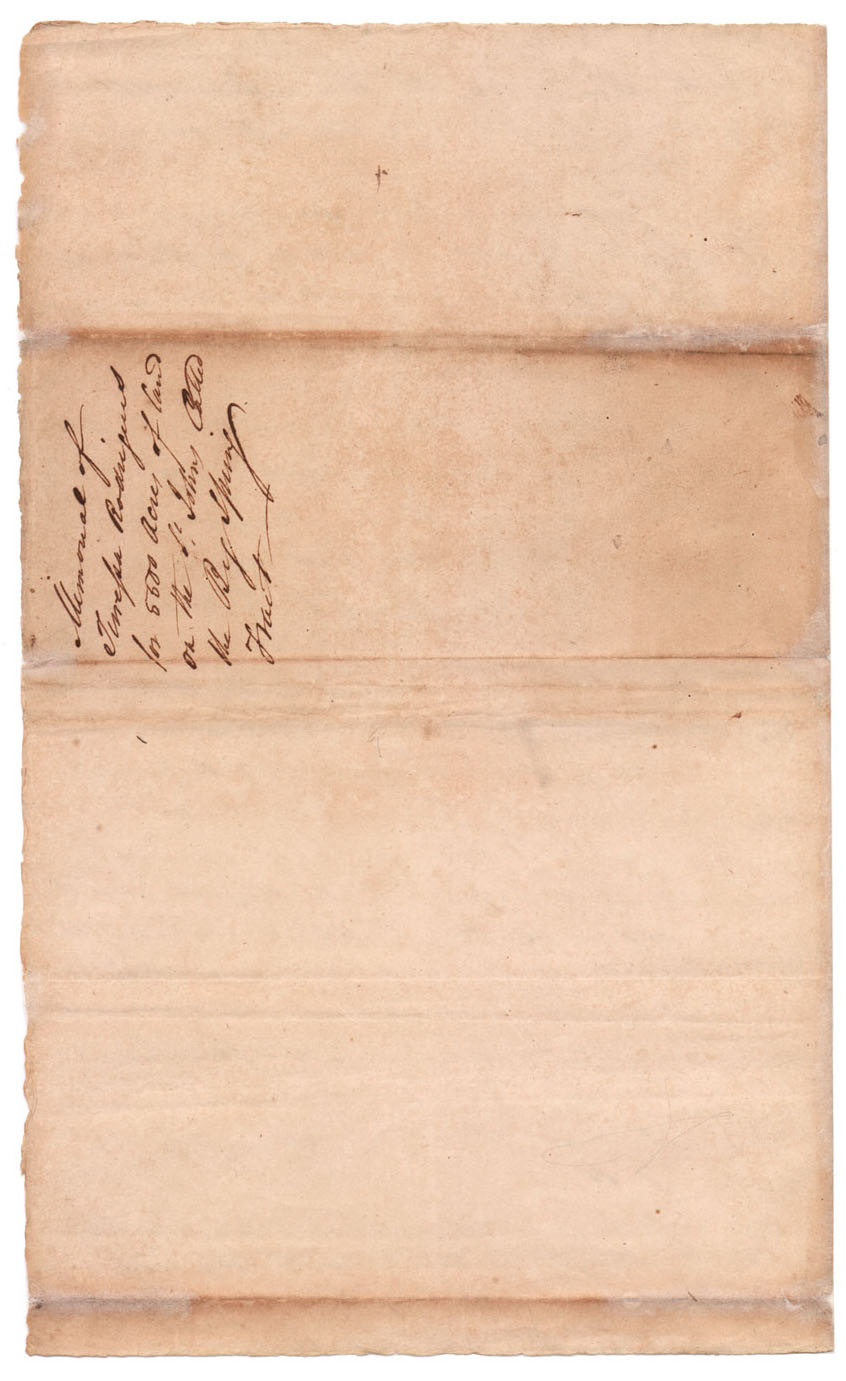 Memorial of
Teresa Rodriguis
for 5500 Acres of land
on the St. Johns Called
the Big Spring
Tract